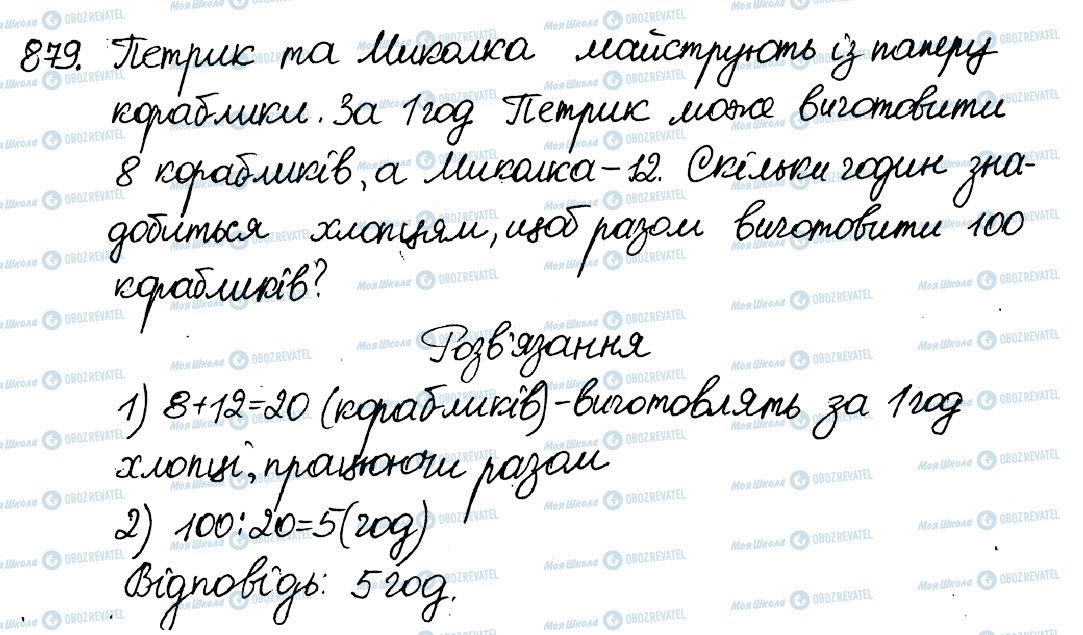 879. Петрик та Миколка майструють із паперу
кораблики. За 1 год Петрик може виготовити
8 корабликів, а Миколка – 12. Скільки годин зна-
добиться хлопцям, щоб разом виготовити 100
корабликів?
Розв'язання
1) 8+12=20 (корабликів) – виготовлять за 1 год
хлопці, працюючи разом
2) 100:20=5 (год)
Відповідь: 5 год.
МояШкола OBOZREVATEL